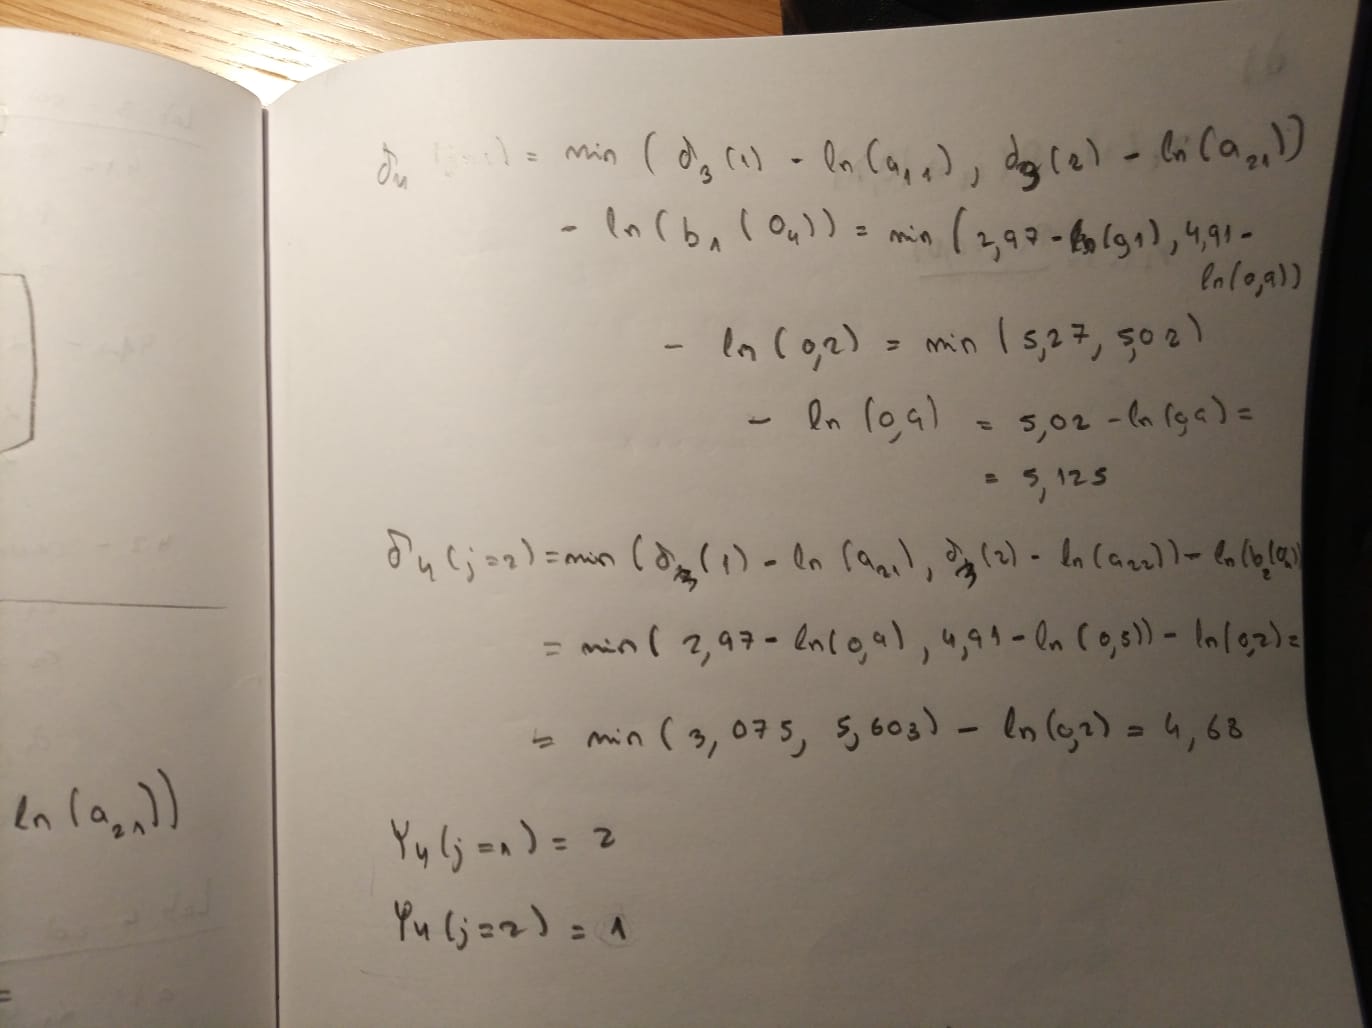 ln(a₂₁))
=
δ₄ (j=1) = min ( δ₃(1) - ln(a₁₁), δ₃(2) - ln(a₂₁))
- ln(b₁(O₄)) = min (2,97 - ln(0,1), 4,91 -
ln(0,9))
- ln(0,2) = min (5,27, 5,02)
- ln (0,9) = 5,02 - ln(0,9) =
= 5,125
δ₄(j=2) = min (δ₃(1) - ln(a₂₁), δ₃(2) - ln(a₂₂)) - ln(b₂(O₄))
= min( 2,97 - ln(0,9), 4,91 - ln(0,5)) - ln(0,2) =
= min (3,075, 5,603) - ln(0,2) = 4,68
Ψ₄(j=1) = 2
Ψ₄(j=2) = 1